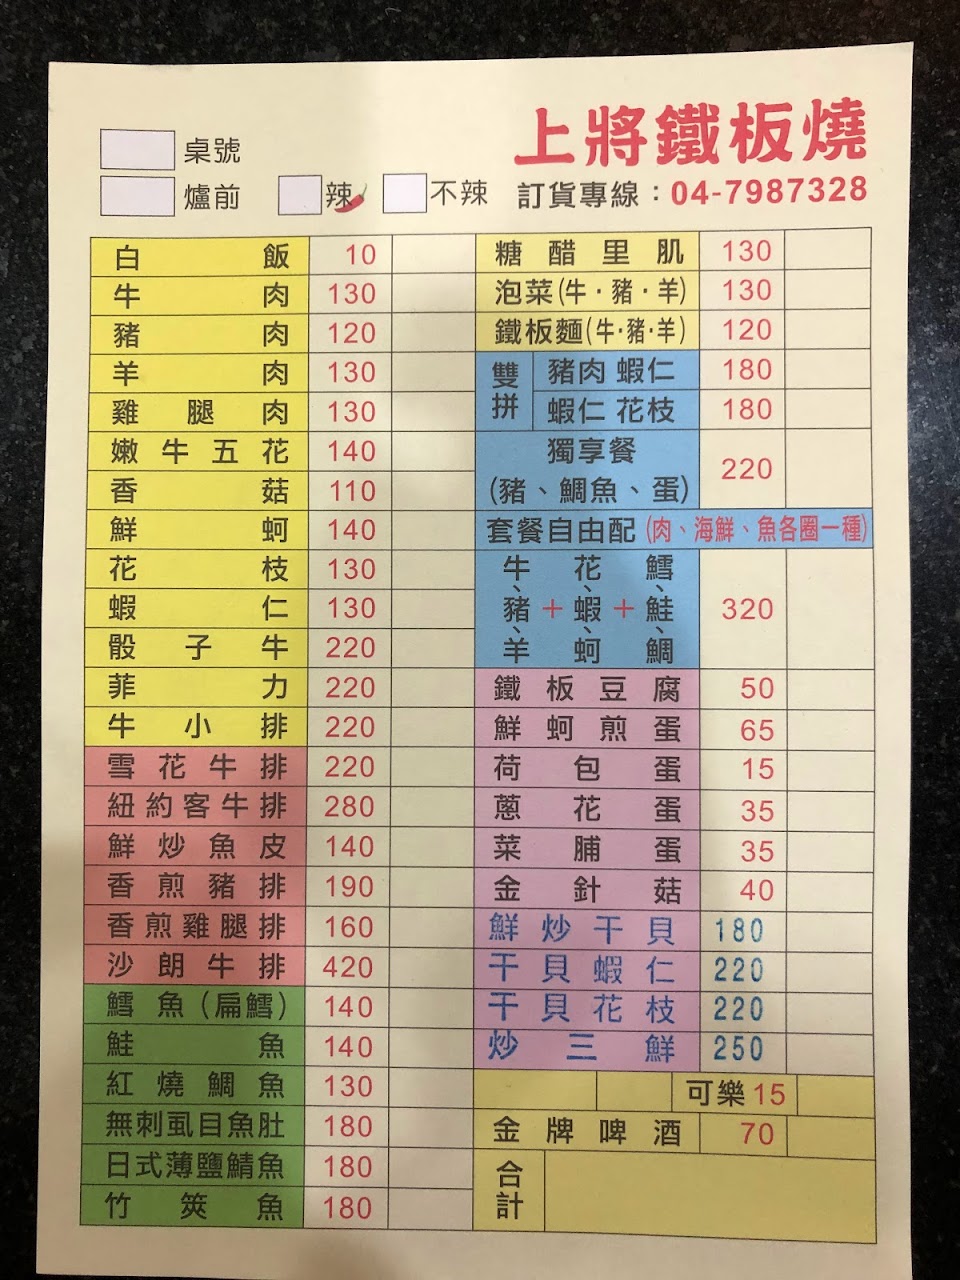 上將鐵板燒
桌號
爐前 辣 不辣 訂貨專線：04-7987328
白飯 10
牛肉 130
豬肉 120
羊肉 130
雞腿肉 130
嫩牛五花 140
香菇 110
鮮蚵 140
花枝 130
蝦仁 130
骰子牛 220
菲力 220
牛小排 220
雪花牛排 220
紐約客牛排 280
鮮炒魚皮 140
香煎豬排 190
香煎雞腿排 160
沙朗牛排 420
鱈魚(扁鱈) 140
鮭魚 140
紅燒鯛魚 130
無刺虱目魚肚 180
日式薄鹽鯖魚 180
竹筴魚 180
糖醋里肌 130
泡菜(牛·豬·羊) 130
鐵板麵(牛·豬·羊) 120
雙拼
豬肉 蝦仁 180
蝦仁 花枝 180
獨享餐
(豬、鯛魚、蛋) 220
套餐自由配(肉、海鮮、魚各圈一種)
牛、豬、羊+花、蝦、蚵+鱈、鮭、鯛 320
鐵板豆腐 50
鮮蚵煎蛋 65
荷包蛋 15
蔥花蛋 35
菜脯蛋 35
金針菇 40
鮮炒干貝 180
干貝蝦仁 220
干貝花枝 220
炒三鮮 250
可樂 15
金牌啤酒 70
合計